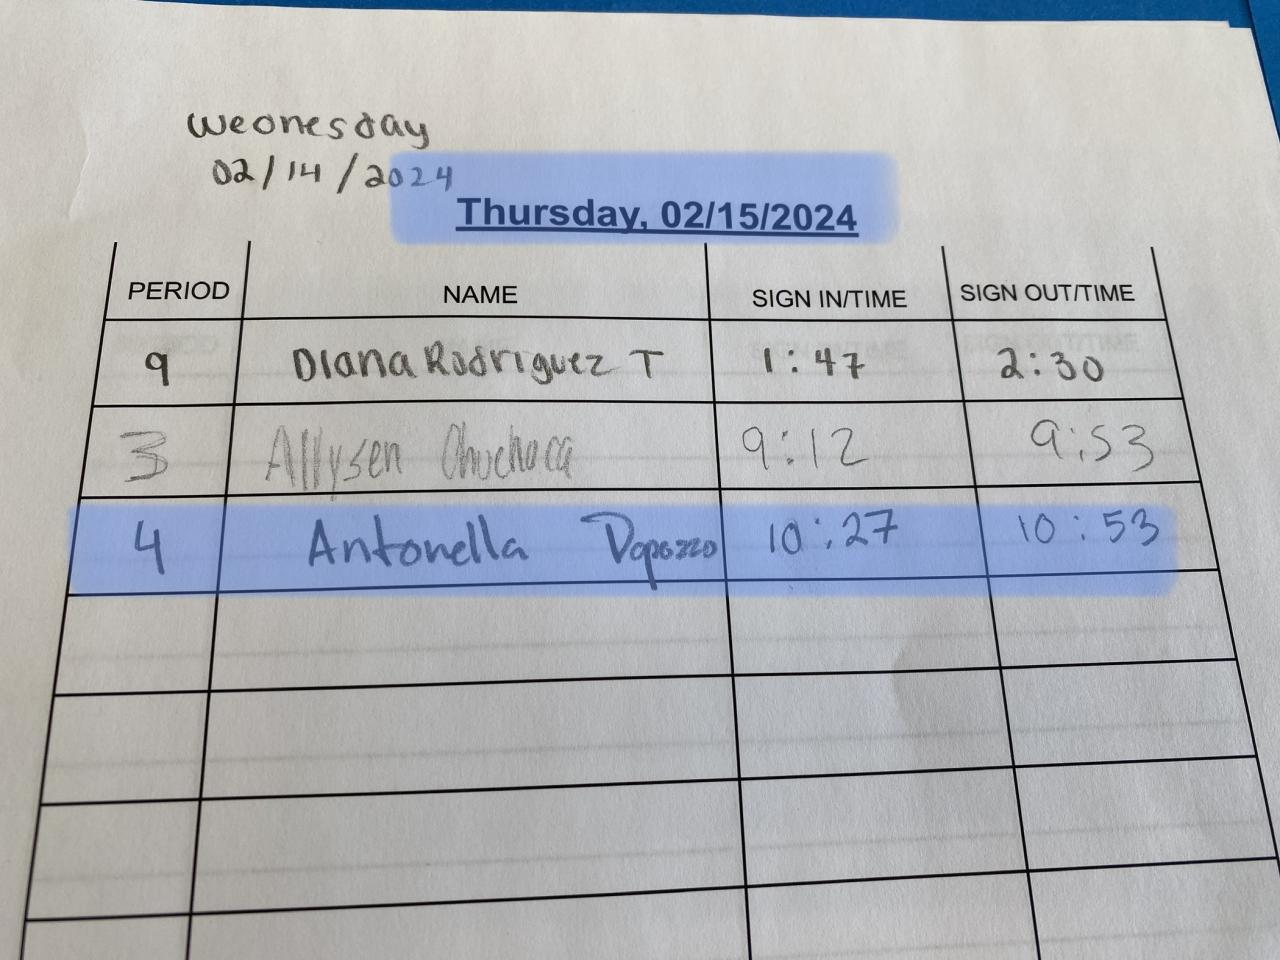 Weonesday
02/14/2024
Thursday, 02/15/2024
PERIOD NAME SIGN IN/TIME SIGN OUT/TIME
9 Diana Rodriguez T 1:47 2:30
3 Allysen Chuchoca 9:12 9:53
4 Antonella 10:27 10:53